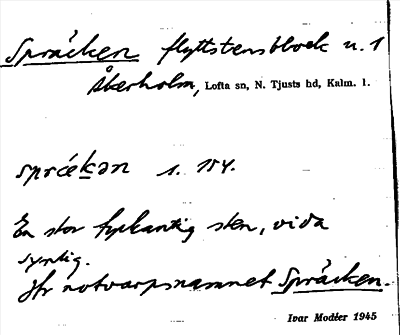 Språcken flyttstensblock n. 1
Åkerholm, Lofta sn, N. Tjusts hd, Kalm. l.
sprǻckən 1. 154.
En stor fyrkantig sten, vida
synlig.
Jfr notvarpsnamnet Språcken.
Ivar Modéer 1945